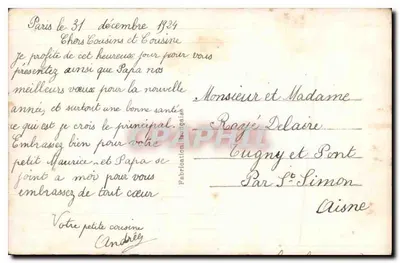 Paris le 31 décembre 1924
Chers Cousins et Cousine
Je profite de cet heureux jour pour vous
présentez ainsi que Papa nos
meilleurs vœux pour la nouvelle
année, et surtout une bonne santé
ce qui est je crois le principal.
Embrassez bien pour votre
petit Maurice, et Papa se
joint à moi pour vous
embrassez de tout cœur
Votre petite cousine
Andrée
Fabrication
Monsieur et Madame
Rayé Delaire
Tugny et Pont
Par St Simon
Aisne
PHILF